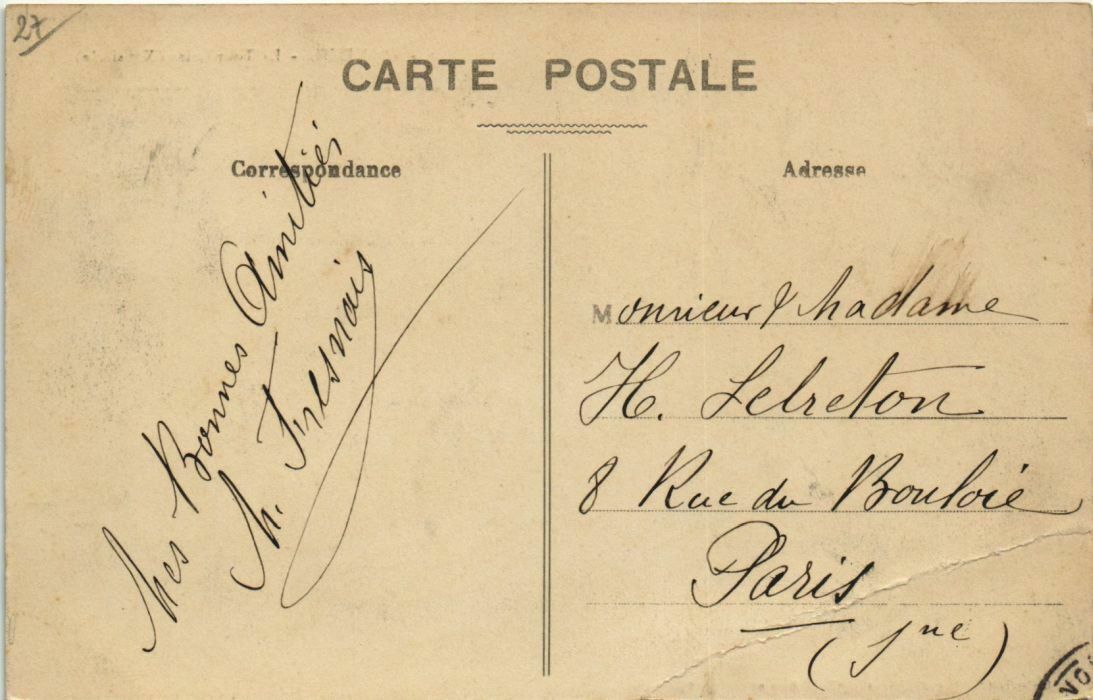 27
CARTE POSTALE
Correspondance
Mes Bonnes Amitiés
M. Fresnais
Adresse
Monsieur & Madame
H. Lebreton
8 Rue du Bouloie
Paris
(Sne)